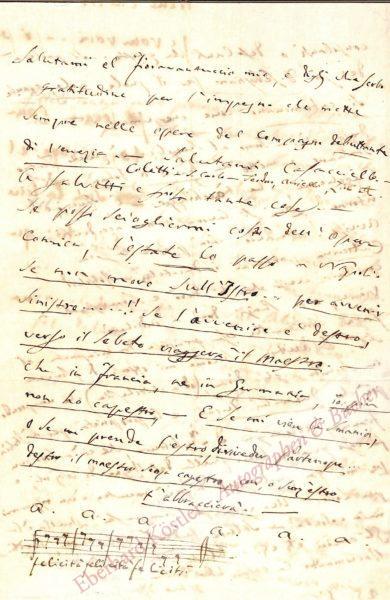 Salutami el Fioravantuccio mio, e digli che serbo
gratitudine per l'impegno che mette
sempre nelle opere del compagno debuttante
di Venezia — Salutami Casaciello —
Coletti
a Salvetti e poi tante cose. —
Se posso sciogliermi costì dell'opera
comica, l'estate lo passo a Napoli.
se non movo sull'Istro... per avvenir
sinistro.....!! Se l'avvenire è destro,
verso il Sebeto viaggerà il Maestro. —
che in Francia, ne in Germania, io
non ho capestro, — E se mi vien la mania,
o se mi prende l'estro, di riveder Partenope...
destro il maestro scopestro
t'abbraccierà. —
a. a. a. a. a. a.
felicità felicità felicità
Eberhard Köstler Autographen & Bücher